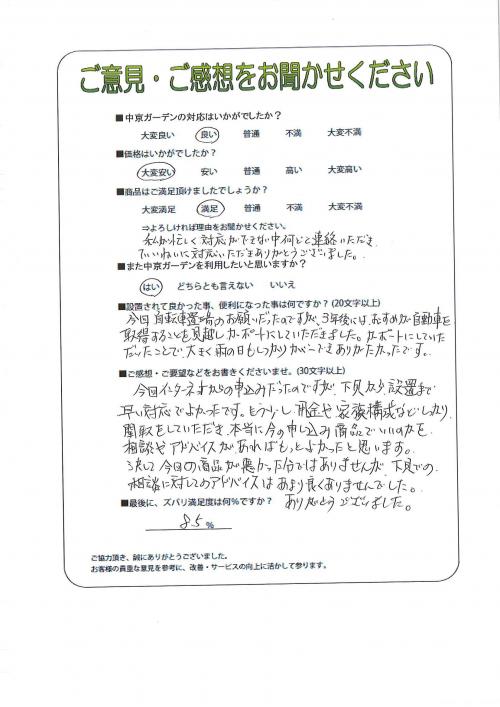 ご意見・ご感想をお聞かせください
■中京ガーデンの対応はいかがでしたか？
大変良い 良い 普通 不満 大変不満
■価格はいかがでしたか？
大変安い 安い 普通 高い 大変高い
■商品はご満足頂けましたでしょうか？
大変満足 満足 普通 不満 大変不満
⇒よろしければ理由をお聞かせください。
私が忙しく対応ができない中何どこ連絡いただき
ていねいに対応いただきありがとうございました。
■また中京ガーデンを利用したいと思いますか？
はい どちらとも言えない いいえ
■設置されて良かった事、便利になった事は何ですか？(20文字以上)
今回自転車置場のお願いだったのですが、3年後には、むすめが自動車を
取得することを見越しカーポートにしていただきました。カーポートにしていた
だいたことで、大きく雨の日もしっかりカバーでき ありがたかったです。
■ご感想・ご要望などをお書きくださいませ。(30文字以上)
今回インターネットからの申込みだったのですが、下見から設置まで
早い対応でよかったです。もう少し、用途や家族構成などしっかり
聞取をしていただき、本当に今の申し込み商品でいいのかを
相談やアドバイスがあればもっとよかったと思います。
決して今回の商品が悪かった分ではありませんが、下見での
相談に対してのアドバイスはあまり良くありませんでした。
■最後に、ズバリ満足度は何％ですか？ ありがとうございました。
85 %
ご協力頂き、誠にありがとうございました。
お客様の貴重な意見を参考に、改善・サービスの向上に活かして参ります。